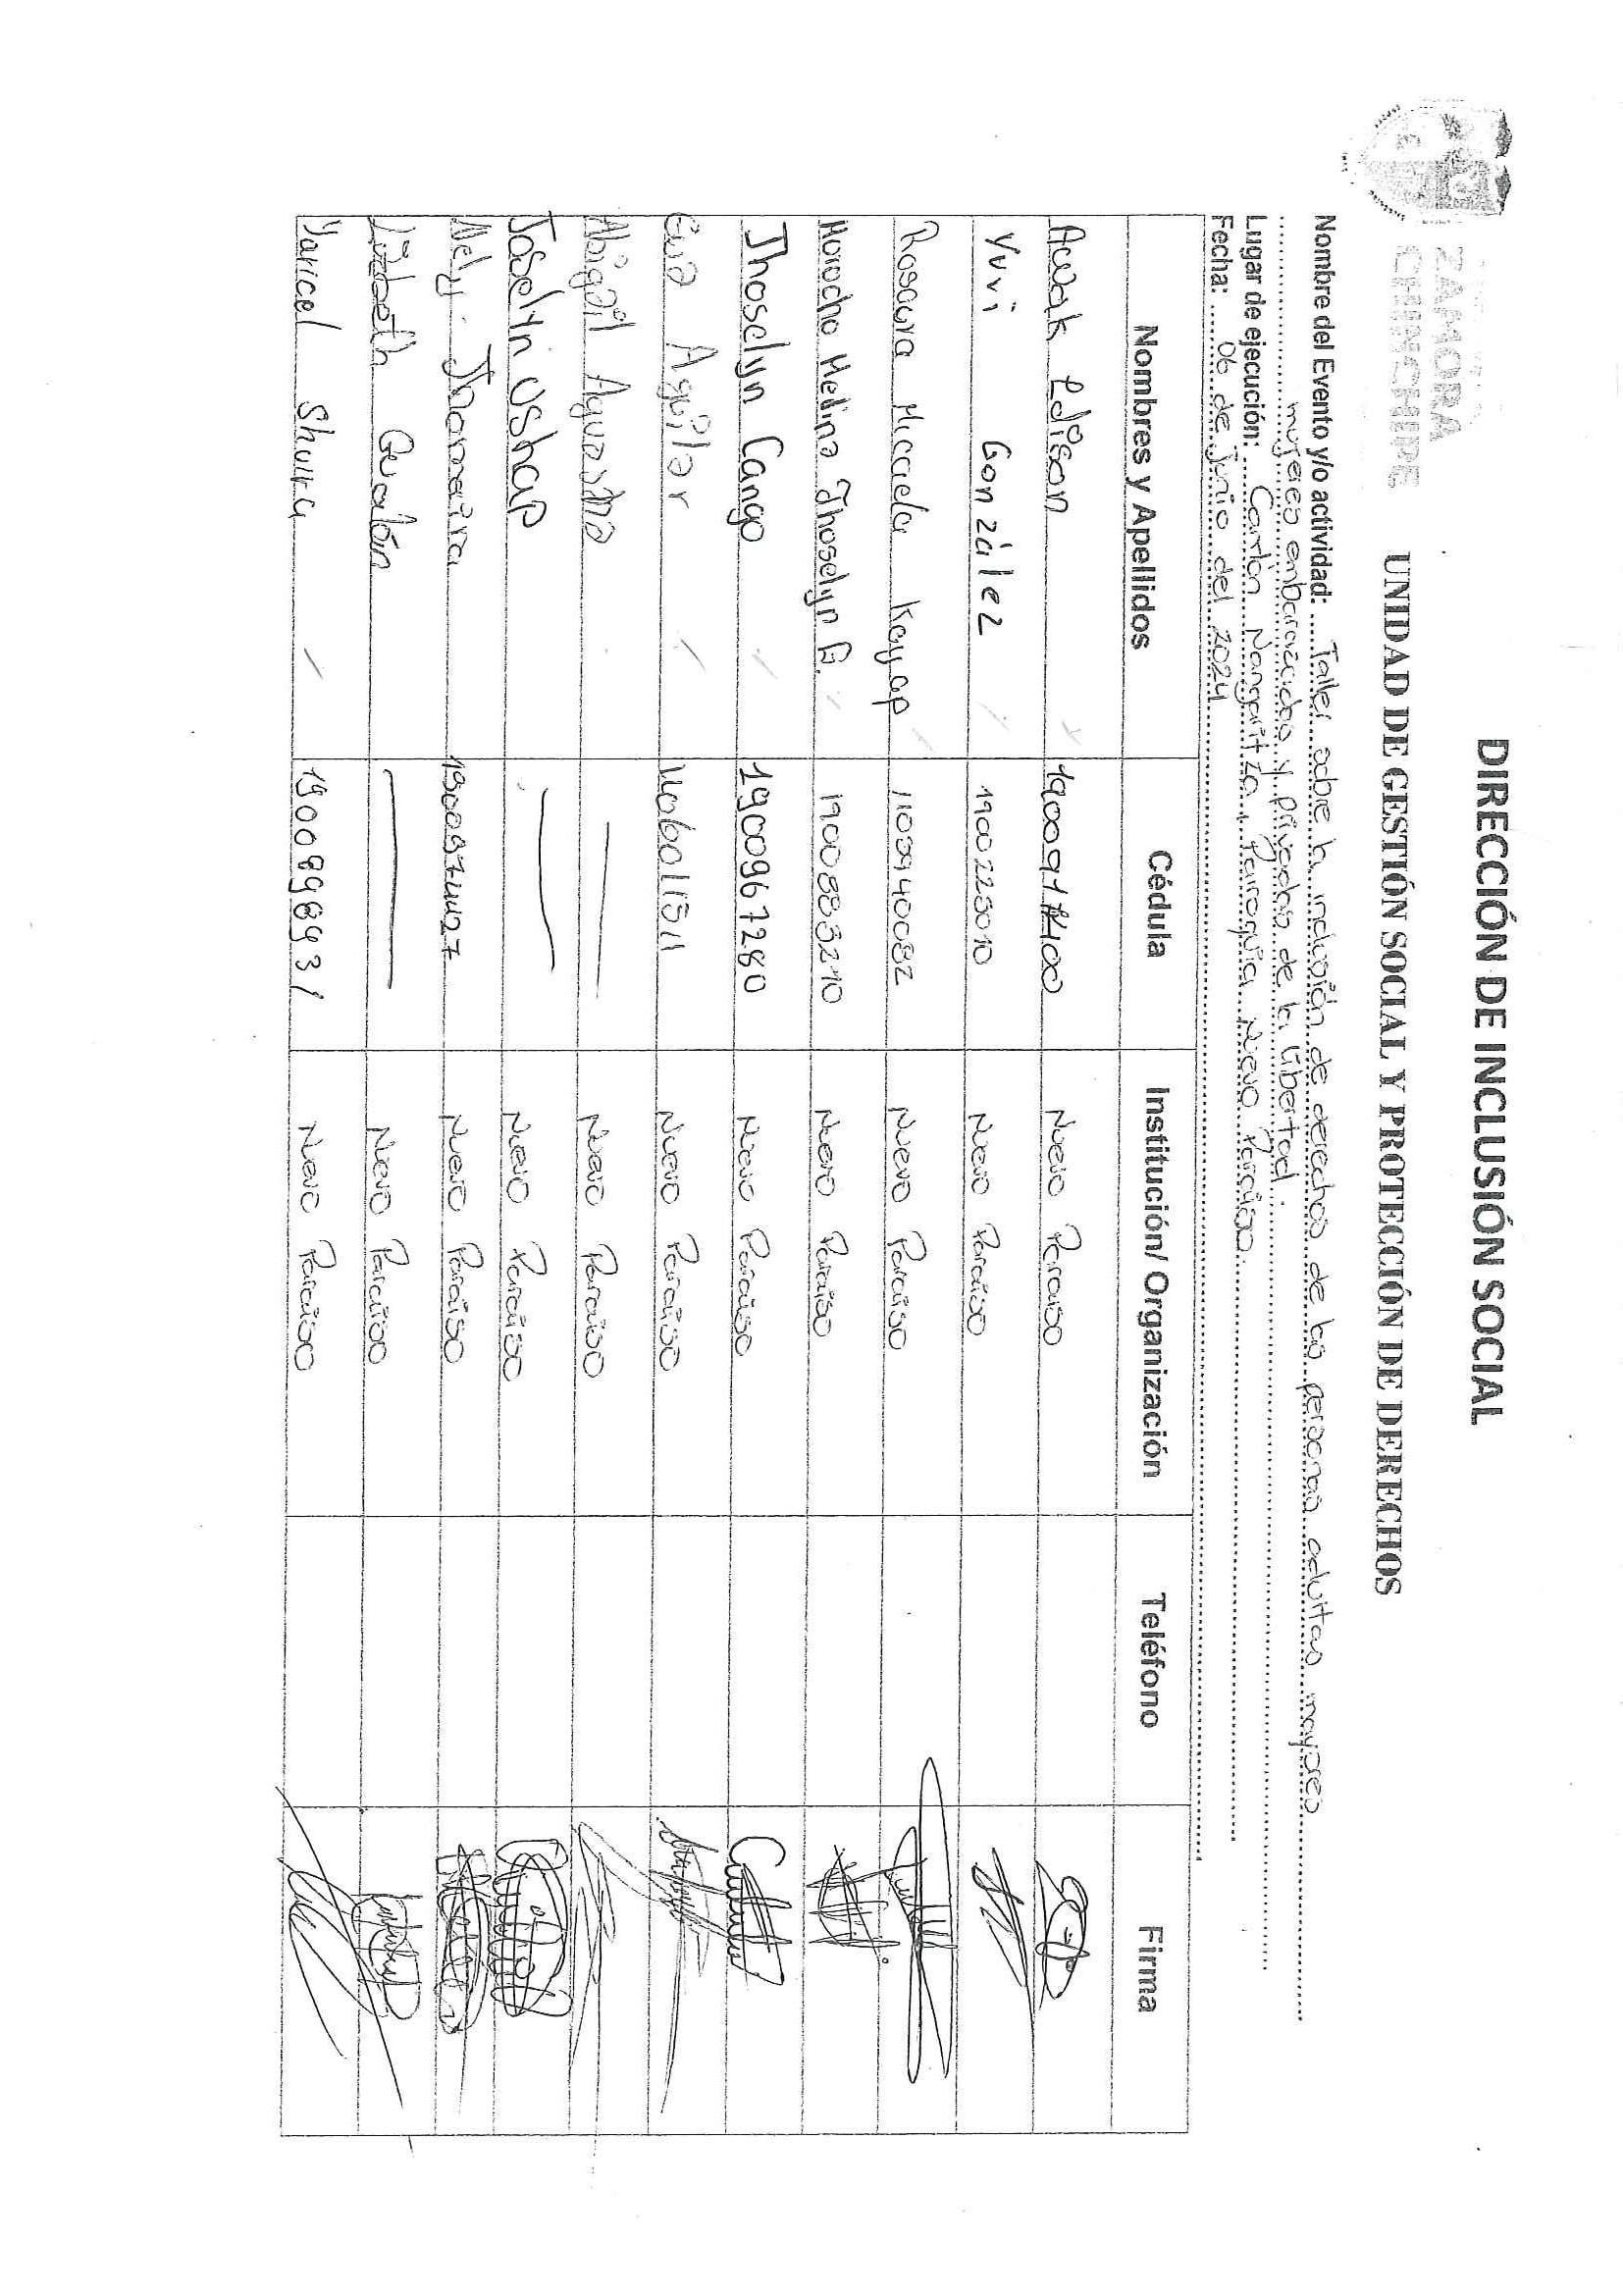 DIRECCIÓN DE INCLUSIÓN SOCIAL
ZAMORA
CHINCHIPE
UNIDAD DE GESTIÓN SOCIAL Y PROTECCIÓN DE DERECHOS
Nombre del Evento y/o actividad: Taller sobre la inclusión de derechos de las personas adultas mayores
mujeres embarazadas y privadas de la libertad.
Lugar de ejecución: Cantón Nangaritza, Parroquia Nuevo Paraiso.
Fecha: 06 de junio del 2024
Nombres y Apellidos Cédula Institución/ Organización Teléfono Firma
Awak Edison Nuevo Paraiso
Yuri González 1900225010 Nuevo Paraiso
Rosaura Micaela Kayap 1109940082 Nuevo Paraiso
Morocho Medina Jhoselyn B. 1900883210 Nuevo Paraiso
Jhoselyn Cango 1900967280 Nuevo Paraiso
Eva Aguilar Nuevo Paraiso
Abigail Nuevo Paraiso
Joselyn Ushap Nuevo Paraiso
Nely Jhomaira 1900974427 Nuevo Paraiso
Lizbeth Gualán Nuevo Paraiso
Yaricel 1900898993 Nuevo Paraiso